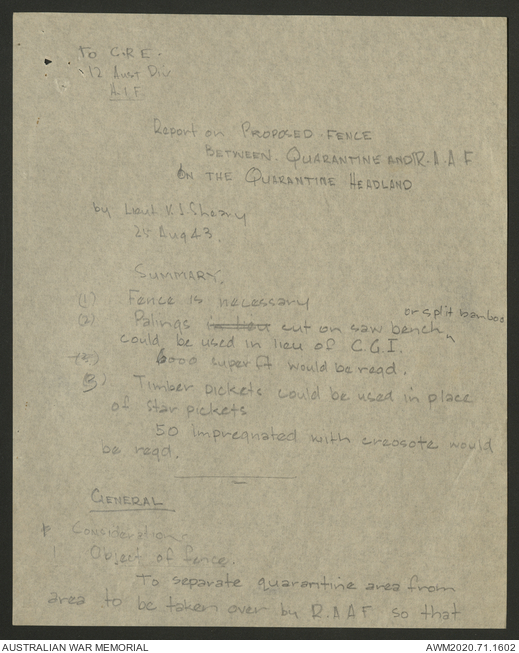 To C.R.E.
12 Aust Div
A.I.F.
Report on PROPOSED FENCE
BETWEEN QUARANTINE AND R.A.A.F
ON THE QUARANTINE HEADLAND
by Lieut V.J. Sheahy
25 Aug 43.
SUMMARY.
(1) Fence is necessary
or split bamboo
(2) Palings in lieu cut on saw bench
could be used in lieu of C.G.I.
6000 super ft would be reqd.
3) Timber pickets could be used in place
of star pickets
50 impregnated with creosote would
be reqd.
GENERAL
Considerations
1. Object of fence.
To separate quarantine area from
area to be taken over by R.A.A.F so that
AUSTRALIAN WAR MEMORIAL
AWM2020.71.1602